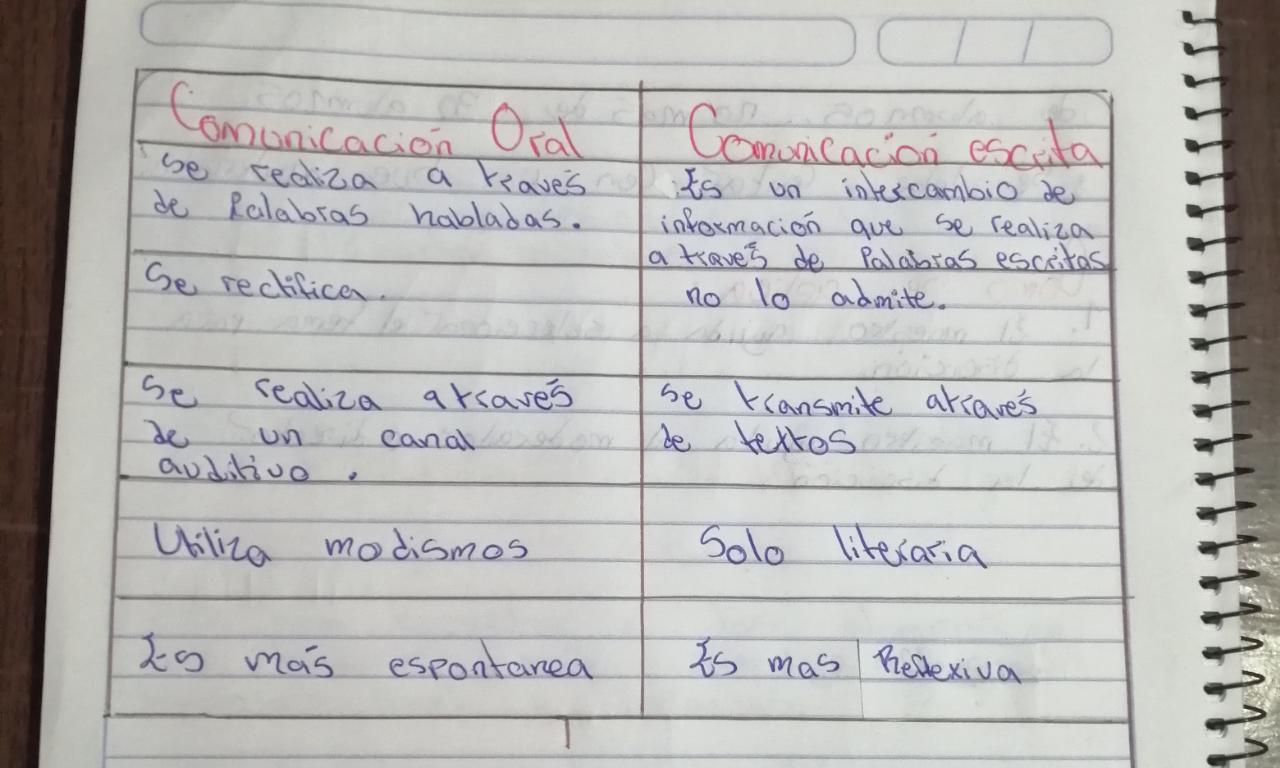 Comunicación Oral
Comunicación escrita
Se realiza a través
de Palabras habladas.
Es un intercambio de
información que se realiza
a través de Palabras escritas
Se rectifica.
no lo admite.
Se realiza através
de un canal
auditivo.
Se transmite através
de textos
Utiliza modismos
Solo literaria
Es más espontanea
Es mas Reflexiva